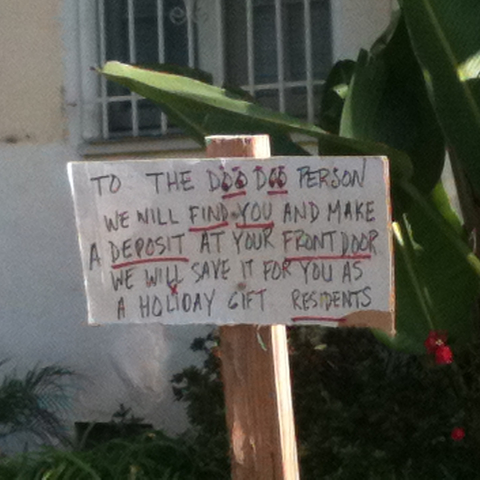 TO THE DOO DOO PERSON
WE WILL FIND YOU AND MAKE
A DEPOSIT AT YOUR FRONT DOOR
WE WILL SAVE IT FOR YOU AS
A HOLIDAY GIFT RESIDENTS